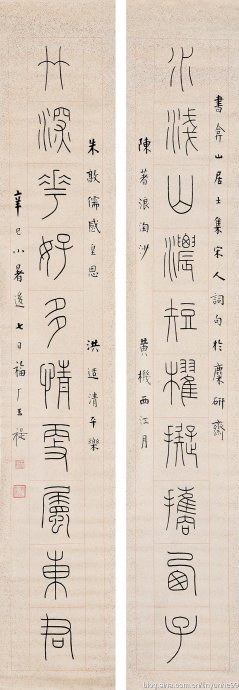 書弇山居士集宋人詞句於麋研齋
水淺山濃短櫂擬攜西子
陳著浪淘沙 黃機西江月
朱敦儒感皇恩 洪适清平樂
竹深華好多情 屬東君
辛巳小暑後七日福厂王禔
blog.sina.com.cn/linyunhe99